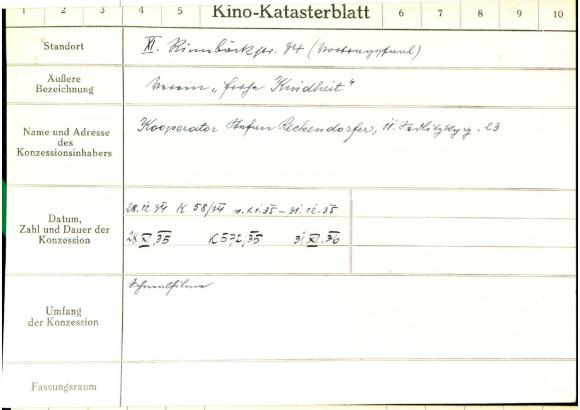 1 2 3 4 5 Kino-Katasterblatt 6 7 8 9 10
Standort
XI. Rinnböckstr. 94 (Vortragssaal)
Äußere
Bezeichnung
Verein „frohe Kindheit“
Name und Adresse
des
Konzessionsinhabers
Kooperator Stefan Reckendorfer, 11. Sedlitzkyg. 23
Datum,
Zahl und Dauer der
Konzession
28.12.34 K 58/34 v. 1.1.35 – 31.12.35
XII.35 K 572/35 31.XII.36
Umfang
der Konzession
Schmalfilme
Fassungsraum